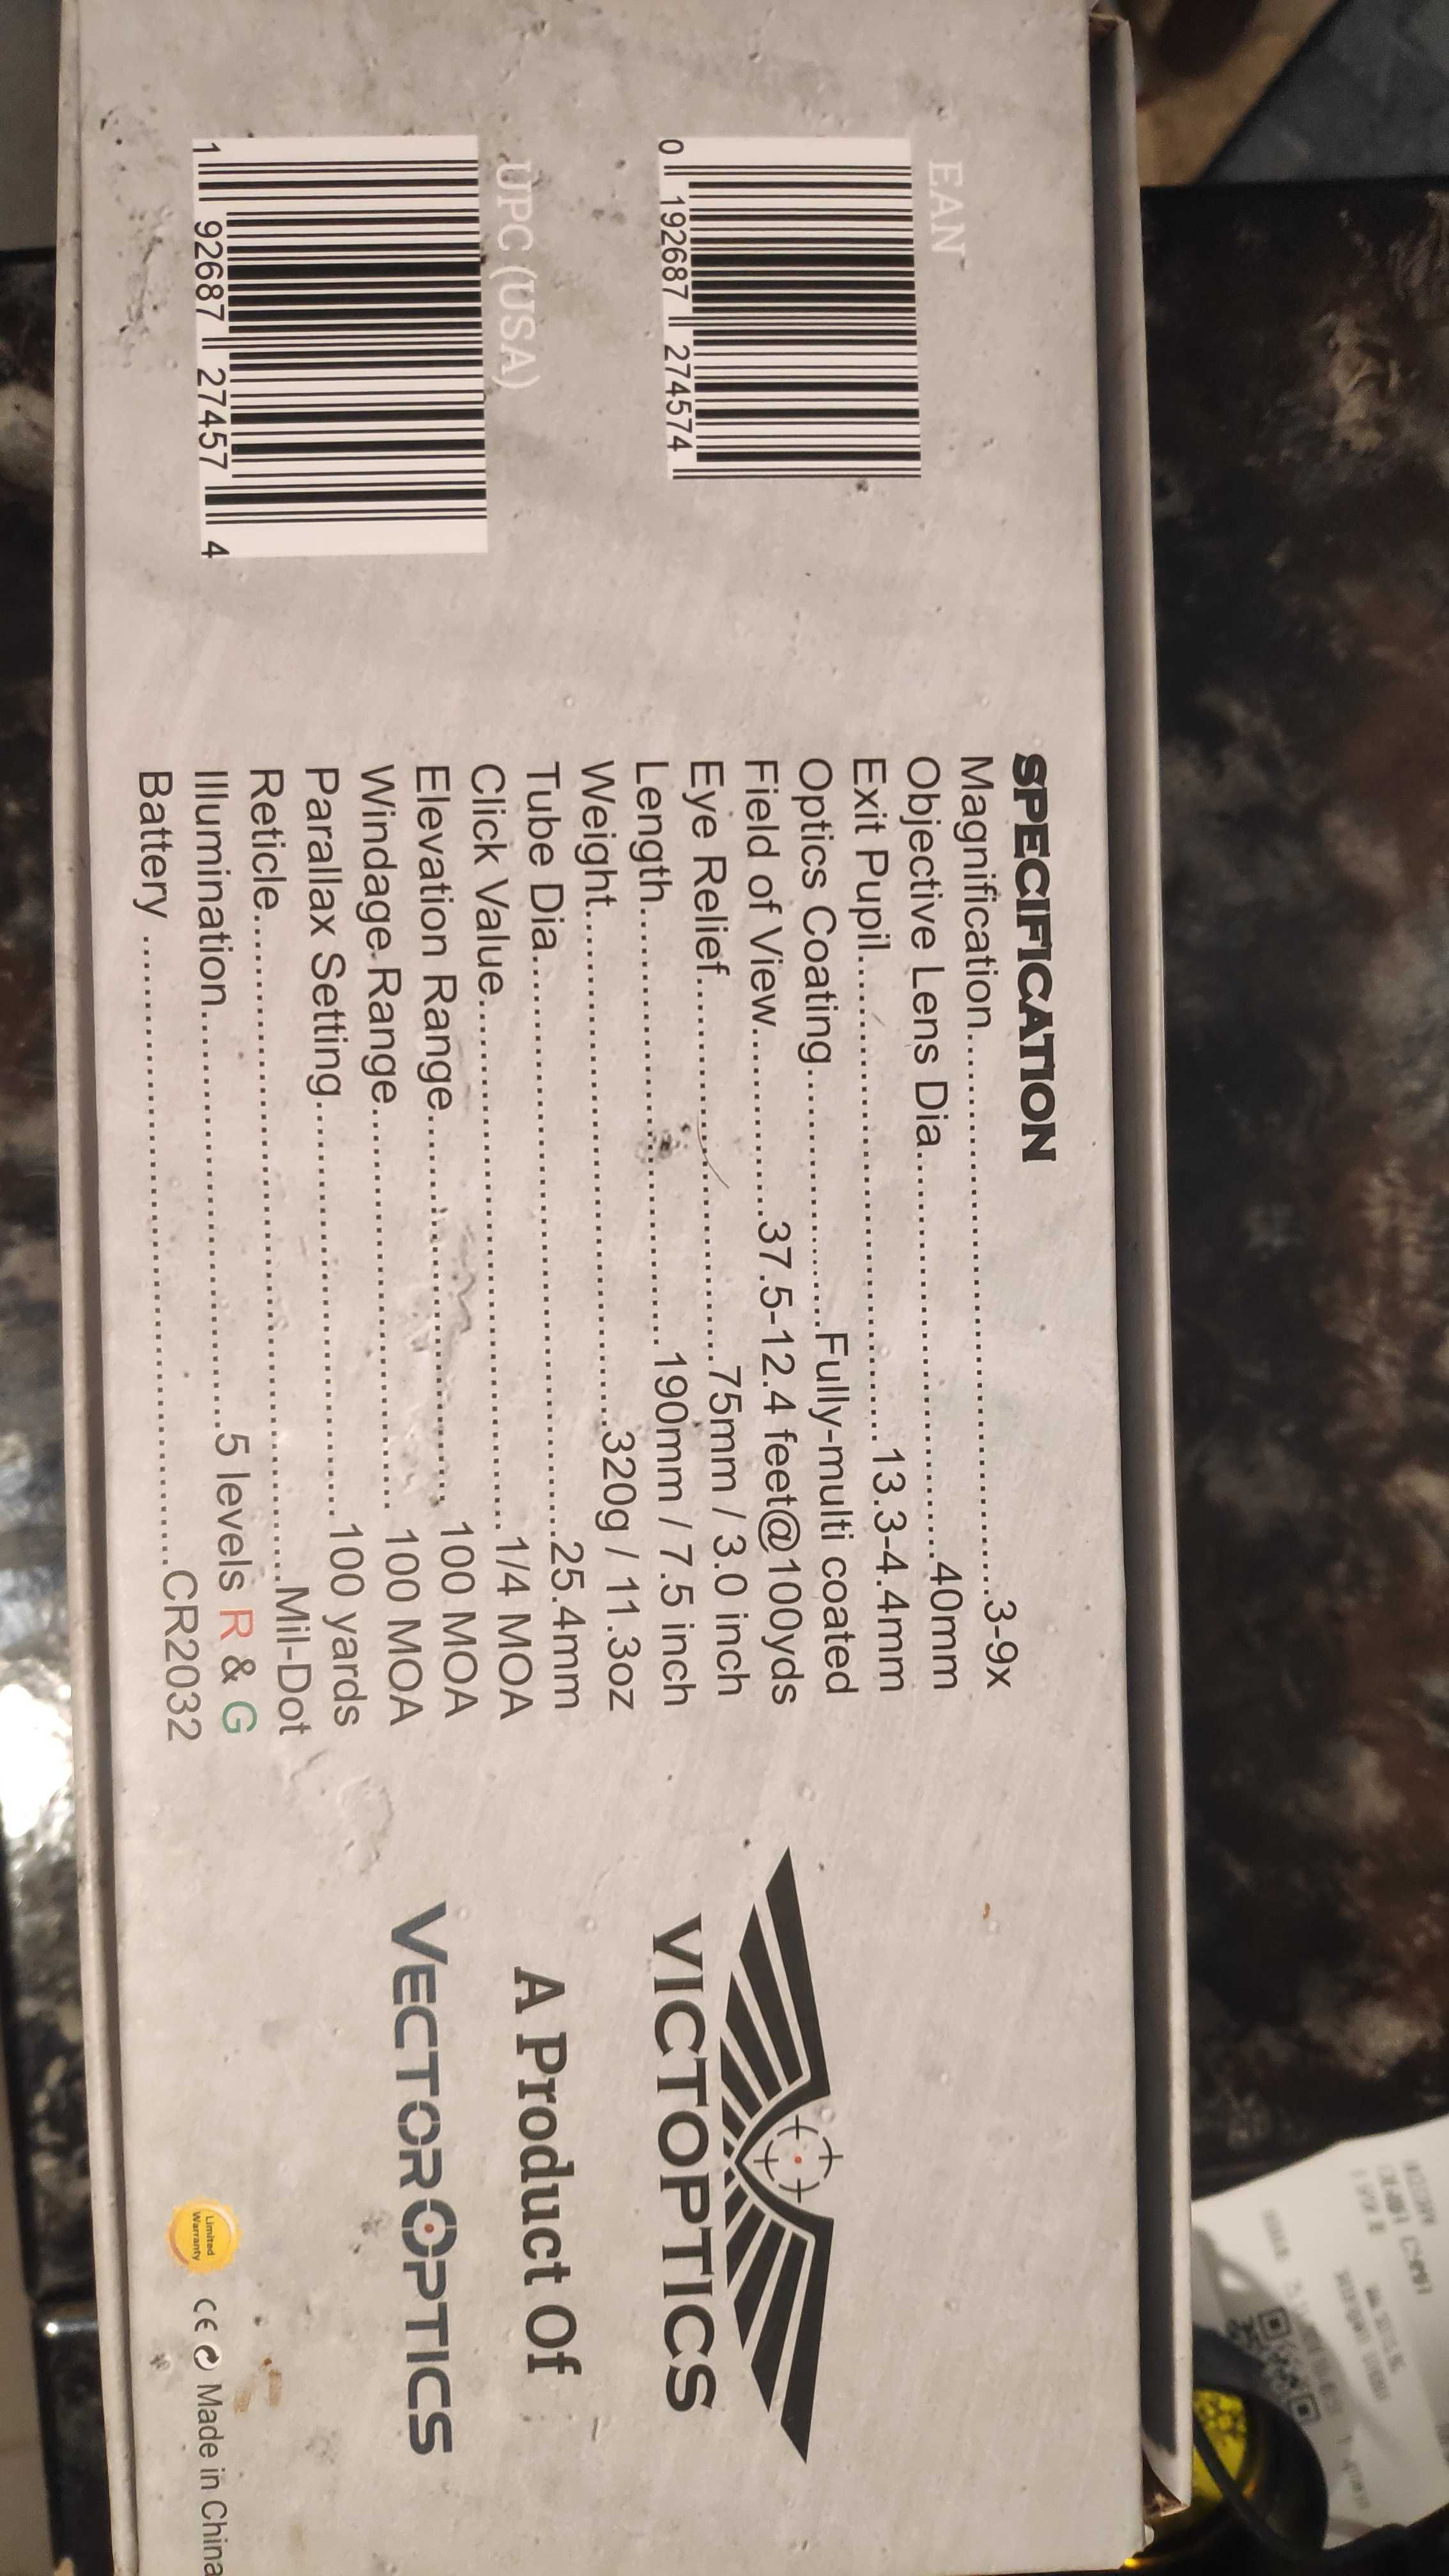 EAN
0 192687 274574
UPC (USA)
1 92687 27457 4
SPECIFICATION
Magnification..........3-9x
Objective Lens Dia..........40mm
Exit Pupil..........13.3-4.4mm
Optics Coating..........Fully-multi coated
Field of View..........37.5-12.4 feet@100yds
Eye Relief..........75mm / 3.0 inch
Length..........190mm / 7.5 inch
Weight..........320g / 11.3oz
Tube Dia..........25.4mm
Click Value..........1/4 MOA
Elevation Range.......... 100 MOA
Windage Range.......... 100 MOA
Parallax Setting..........100 yards
Reticle..........Mil-Dot
Illumination..........5 levels R & G
Battery ..........CR2032
VICTOPTICS
A Product Of
VECTOROPTICS
Limited
Warranty
CE Made in China